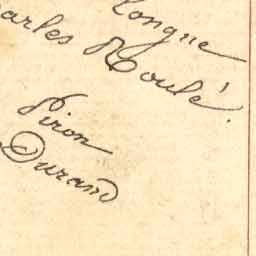 Longue
arles Roulé.
Piron
Durand